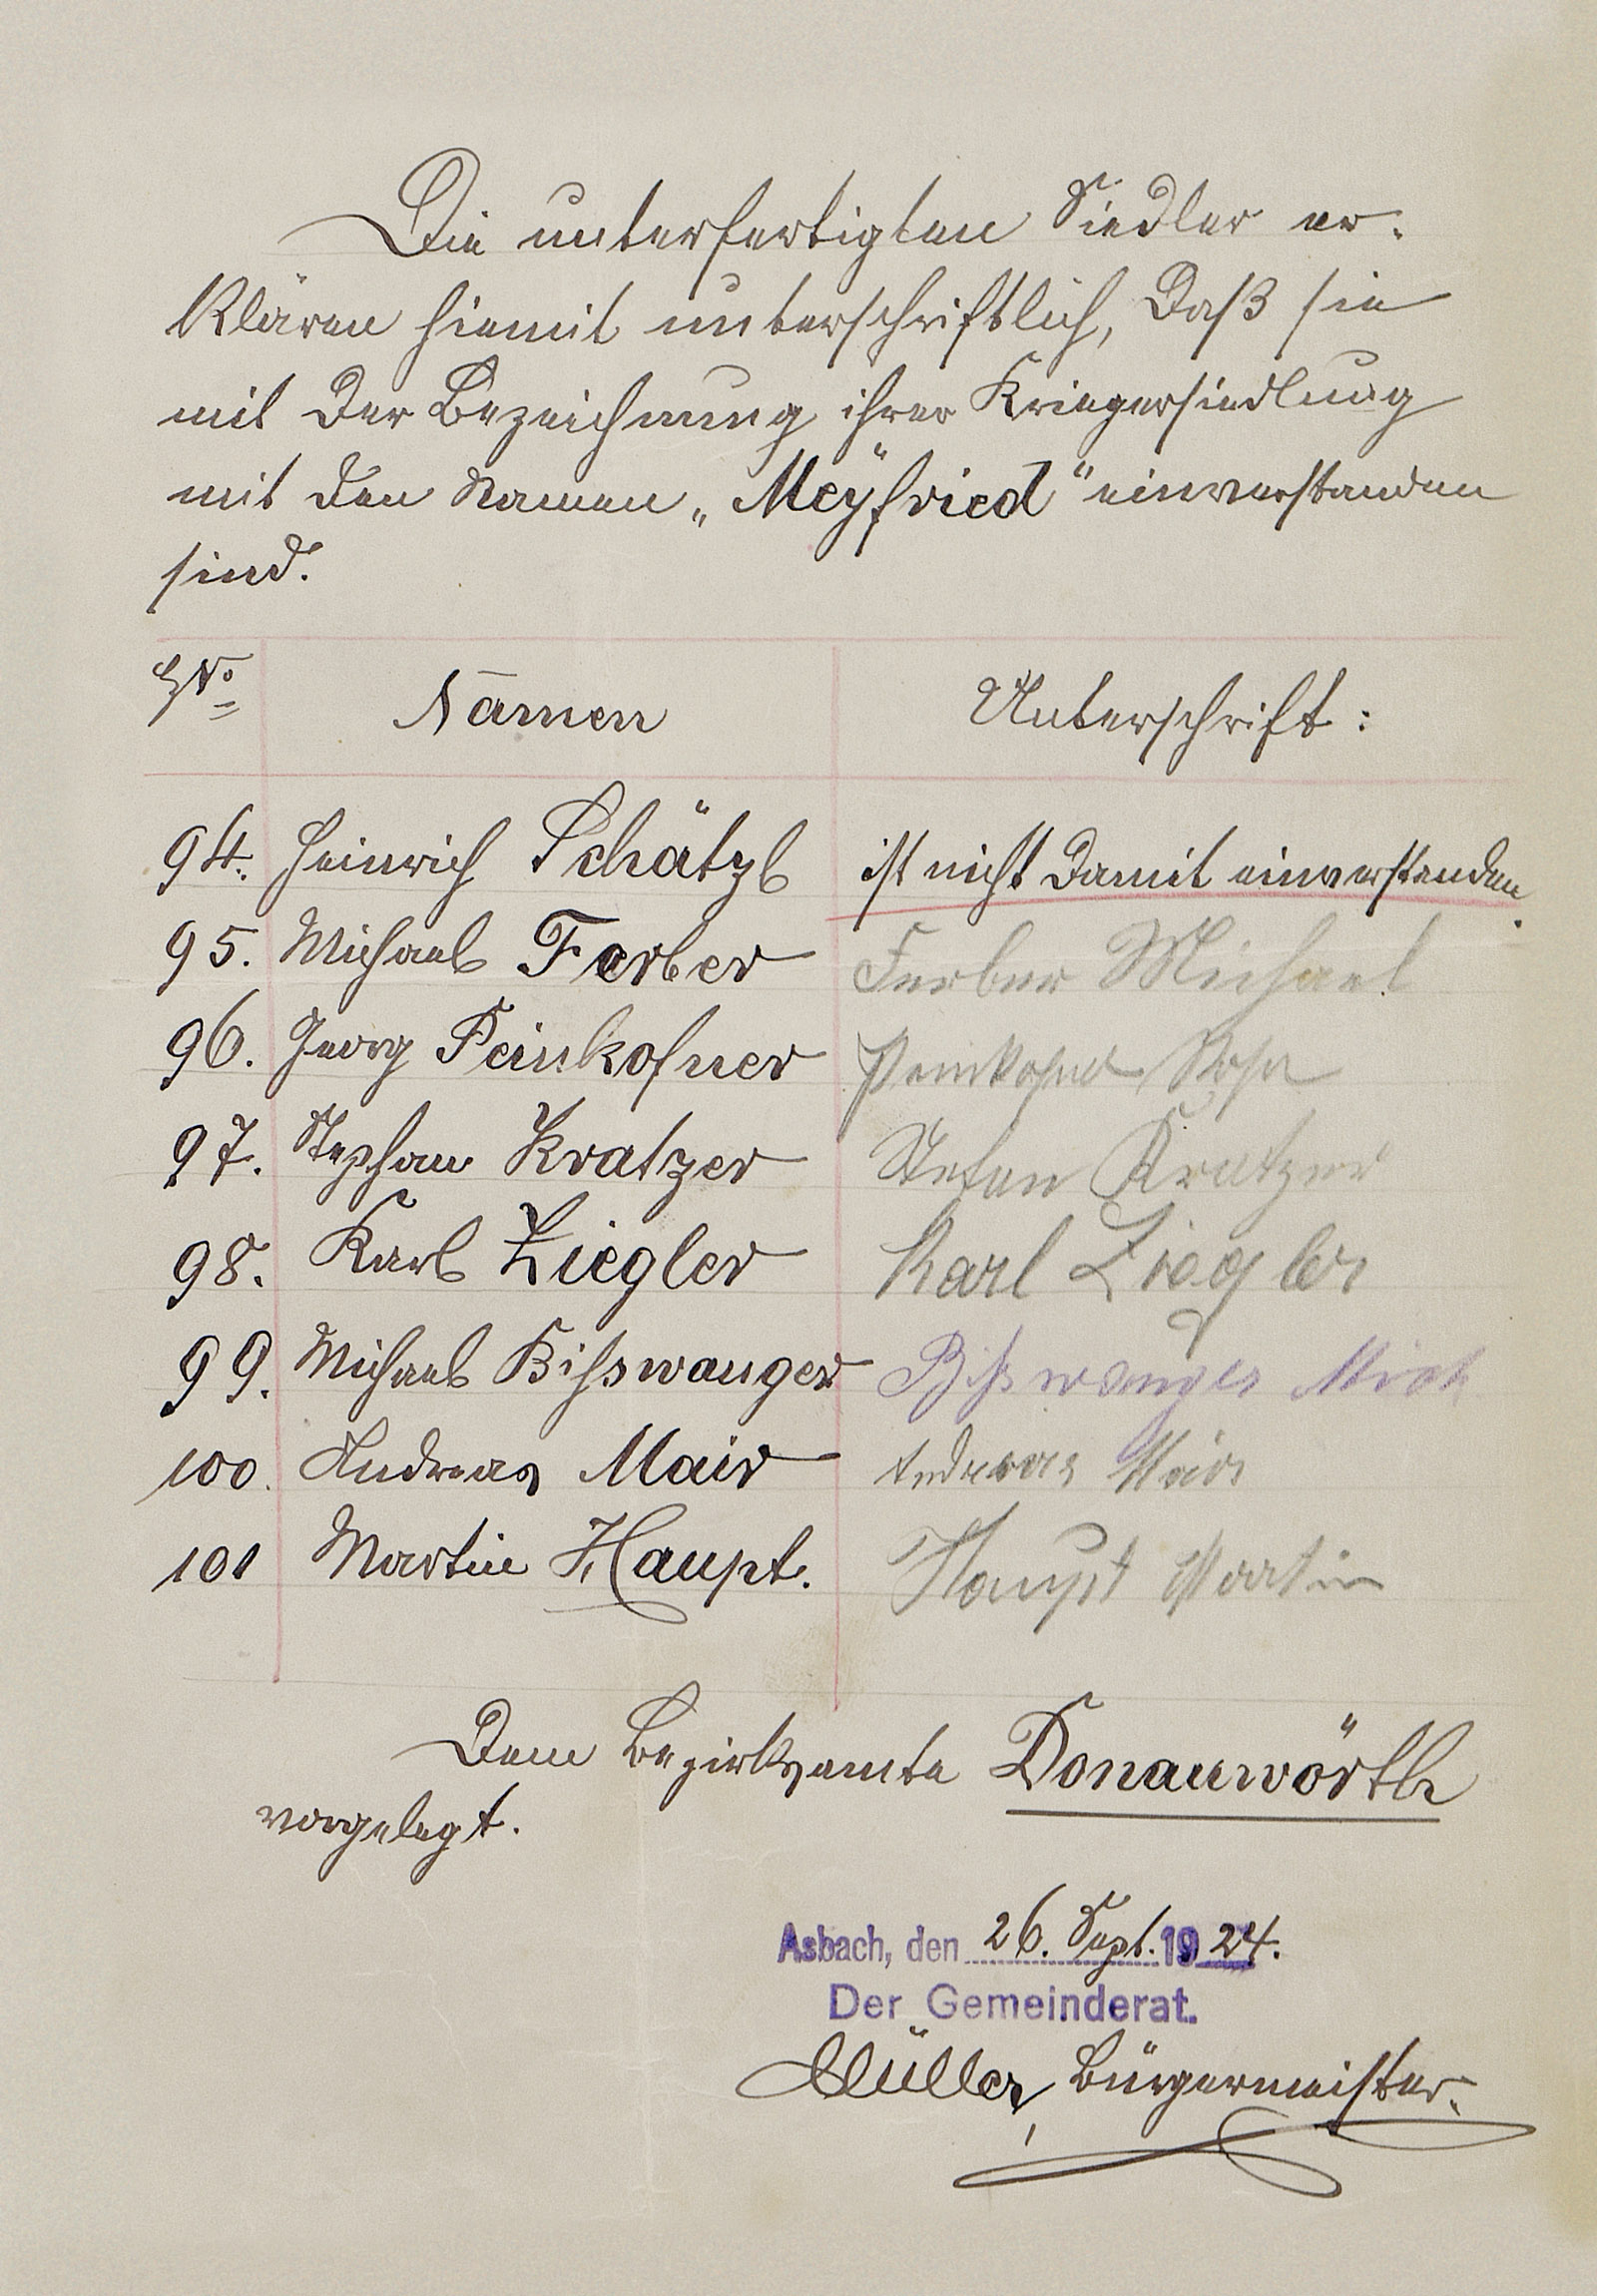 Die unterfertigten Siedler er-
klären hiemit unterschriftlich, daß sie
mit der Bezeichnung ihrer Kriegersiedlung
mit den Namen „Meÿfried" einverstanden
sind.
HNo Namen Unterschrift:
94. Heinrich Schätzl ist nicht damit einverstanden.
95. Michael Ferber Ferber Michael
96. Georg Peinkofner Peinkofner
97. Stephan Kratzer Stefan Kratzer
98. Karl Ziegler Karl Ziegler
99. Michael Bißwanger Bißwanger Mich
100. Andreas Mair Andreas Mair
101 Martin Haupt. Haupt Martin
Dem Bezirksamte Donauwörth
vorgelegt.
Asbach, den 26. Sept. 1924.
Der Gemeinderat.
Müller, Bürgermeister.